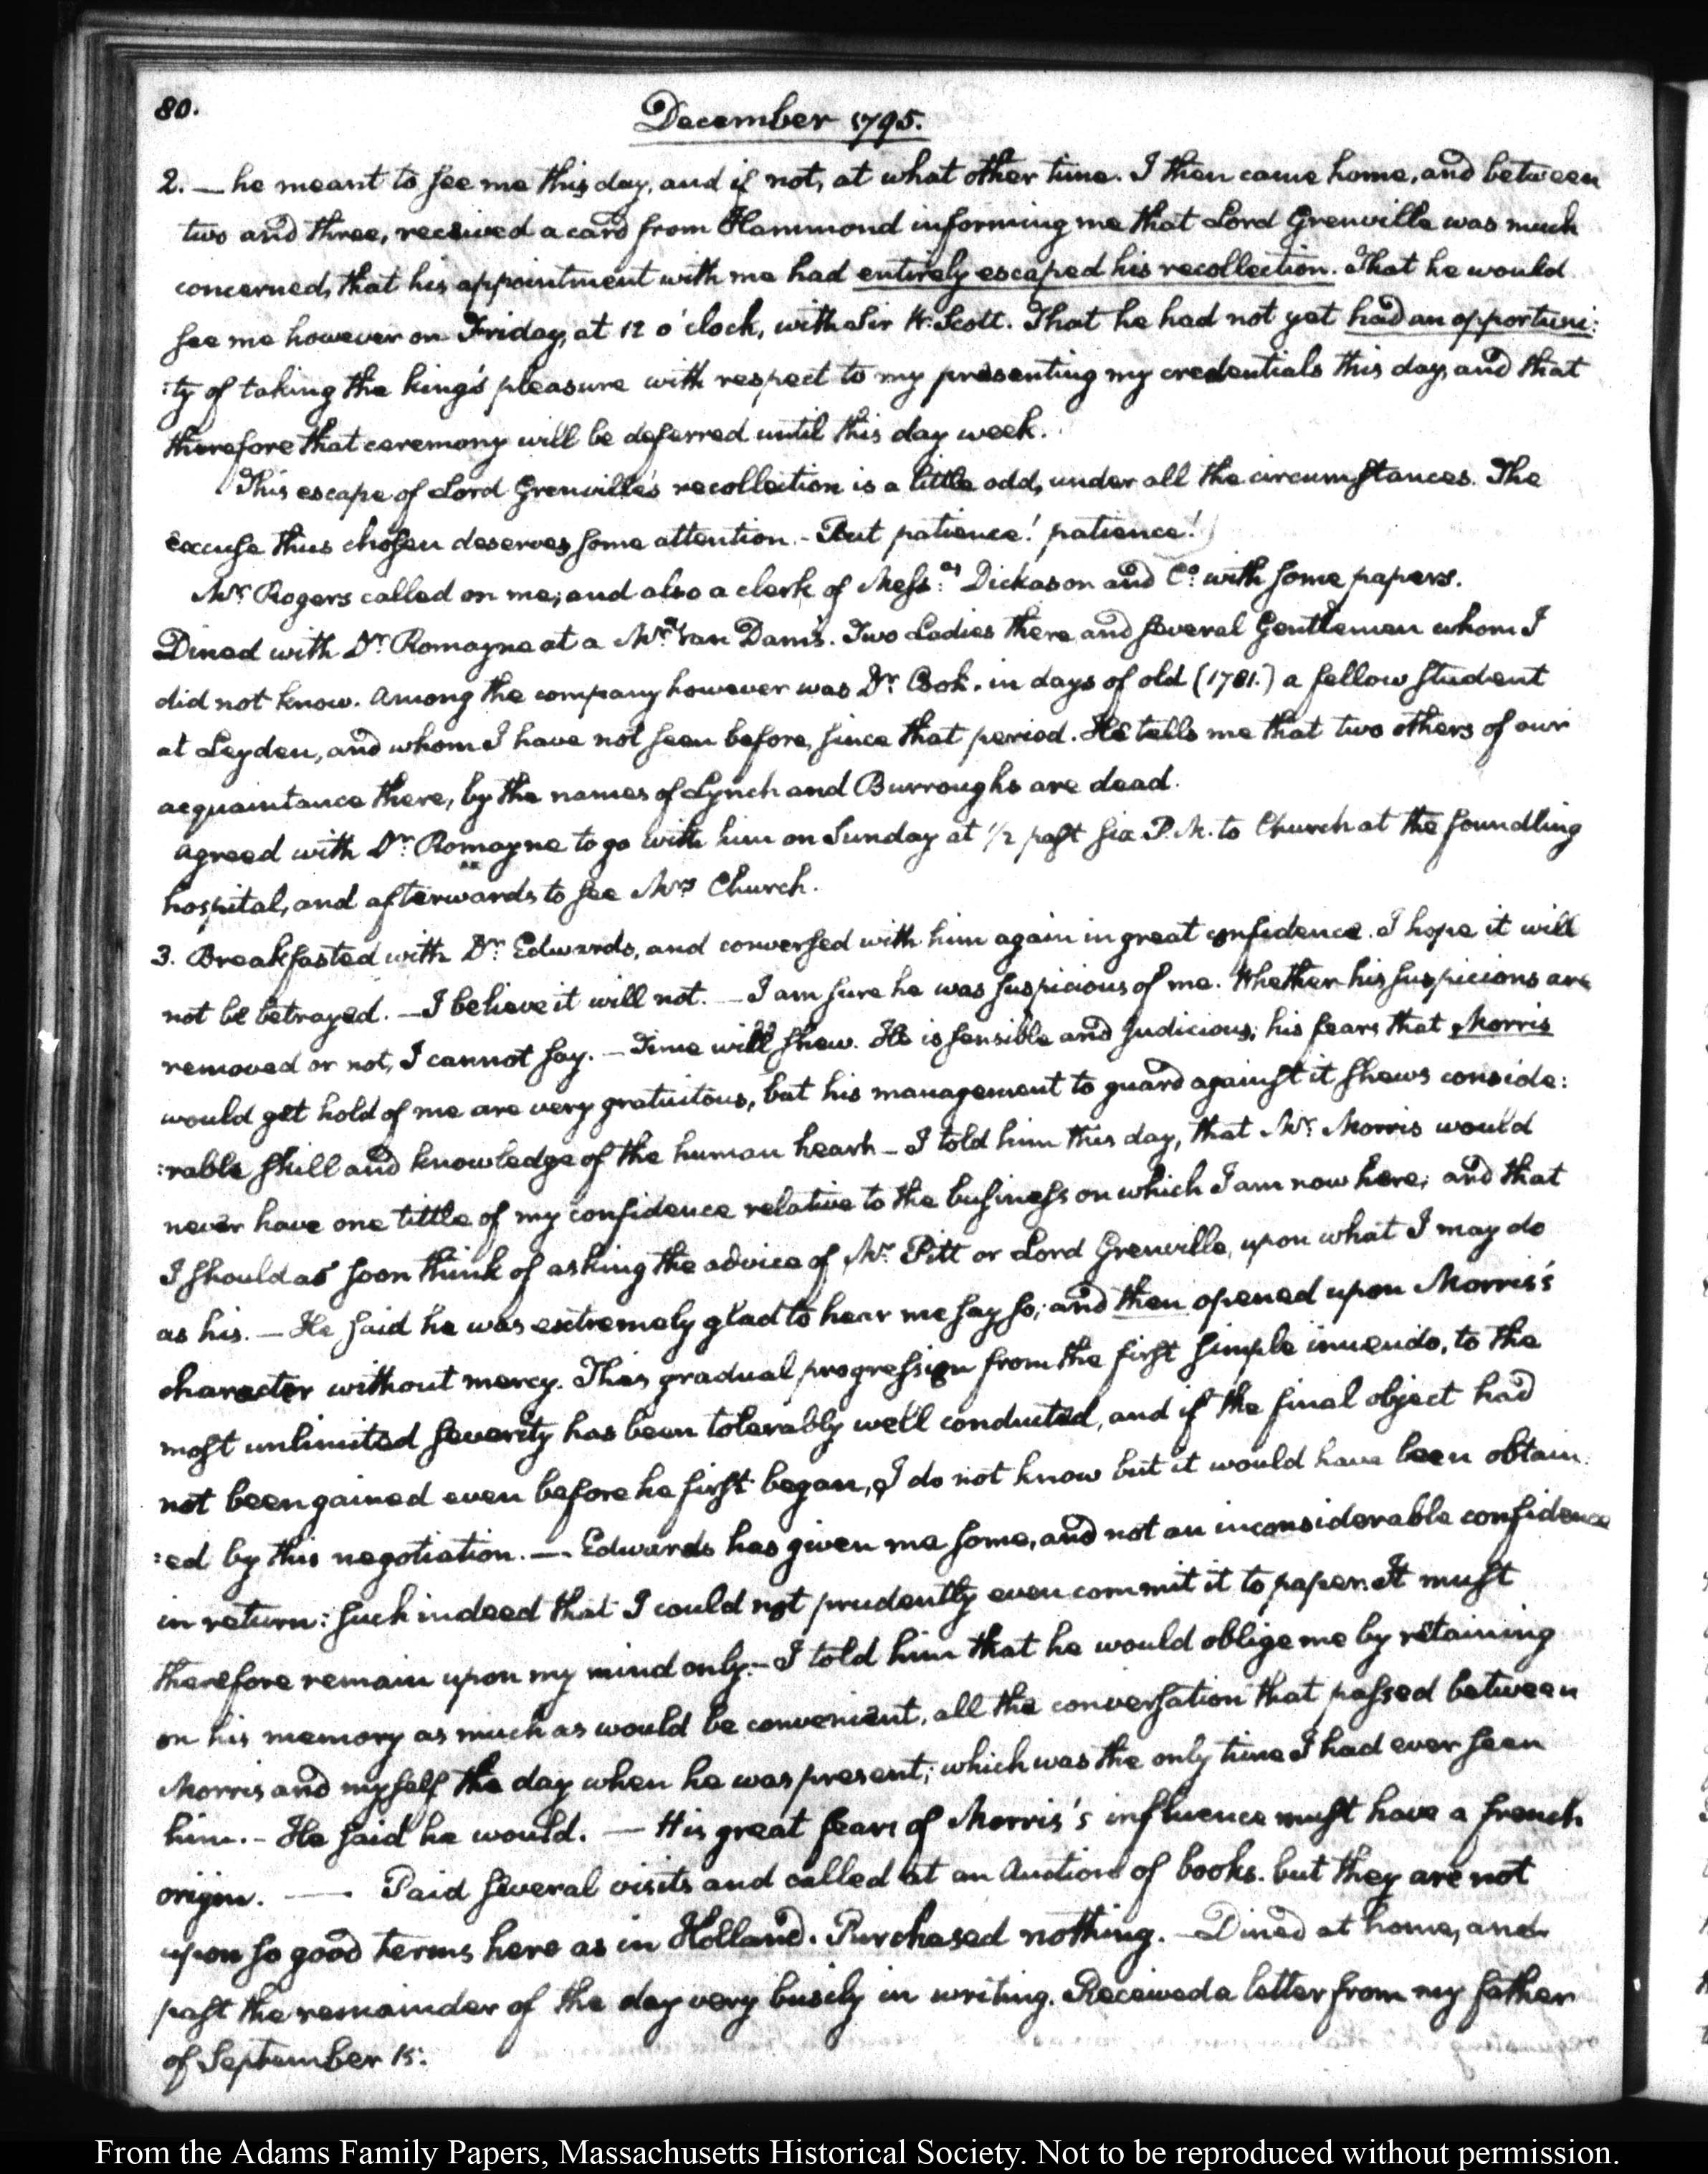 80.
December 1795.
2. — he meant to see me this day, and if not, at what other time. I then came home, and between
two and three, received a card from Hammond informing me that Lord Grenville was much
concerned, that his appointment with me had entirely escaped his recollection. That he would
see me however on Friday, at 12 o'clock, with Sir W. Scott. That he had not yet had an opportuni:
:ty of taking the king's pleasure with respect to my presenting my credentials this day, and that
therefore that ceremony will be deferred until this day week.
This escape of Lord Grenville's recollection is a little odd, under all the circumstances. The
excuse thus chosen deserves some attention. - But patience! patience!
Mr. Rogers called on me; and also a clerk of Mess:rs Dickason and Co. with some papers.
Dined with Dr. Romayne at a Mr. Van Dam's. Two Ladies there and several Gentlemen whom I
did not know. Among the company however was Dr. Cook. in days of old (1781.) a fellow student
at Leyden, and whom I have not seen before, since that period. He tells me that two others of our
acquaintance there, by the names of Lynch and Burroughs are dead.
Agreed with Dr. Romayne to go with him on Sunday at 1/2 past six P.M. to Church at the foundling
hospital, and afterwards to see Mrs Church.
3. Breakfasted with Dr. Edwards, and conversed with him again in great confidence. I hope it will
not be betrayed. — I believe it will not. — I am sure he was suspicious of me. Whether his suspicions are
removed or not, I cannot say. — Time will shew. He is sensible and judicious; his fears that Morris
would get hold of me are very gratuitous, but his management to guard against it shews conside:
:rable skill and knowledge of the human heart — I told him this day, that Mr. Morris would
never have one tittle of my confidence relative to the business on which I am now here; and that
I should as soon think of asking the advice of Mr. Pitt or Lord Grenville, upon what I may do
as his. — He said he was extremely glad to hear me say so; and then opened upon Morris's
character without mercy. This gradual progression from the first simple inuendo, to the
most unlimited severity has been tolerably well conducted, and if the final object had
not been gained even before he first began, I do not know but it would have been obtain:
:ed by this negotiation. — Edwards has given me some, and not an inconsiderable confidence
in return: such indeed that I could not prudently even commit it to paper. It must
therefore remain upon my mind only. - I told him that he would oblige me by retaining
on his memory as much as would be convenient, all the conversation that passed between
Morris and myself the day when he was present; which was the only time I had ever seen
him. - He said he would. — His great fears of Morris's influence must have a french
origin. — Paid several visits and called at an Auction of books. but they are not
upon so good terms here as in Holland. Purchased nothing. - Dined at home, and
past the remainder of the day very busily in writing. Received a letter from my father
of September 15:
From the Adams Family Papers, Massachusetts Historical Society. Not to be reproduced without permission.